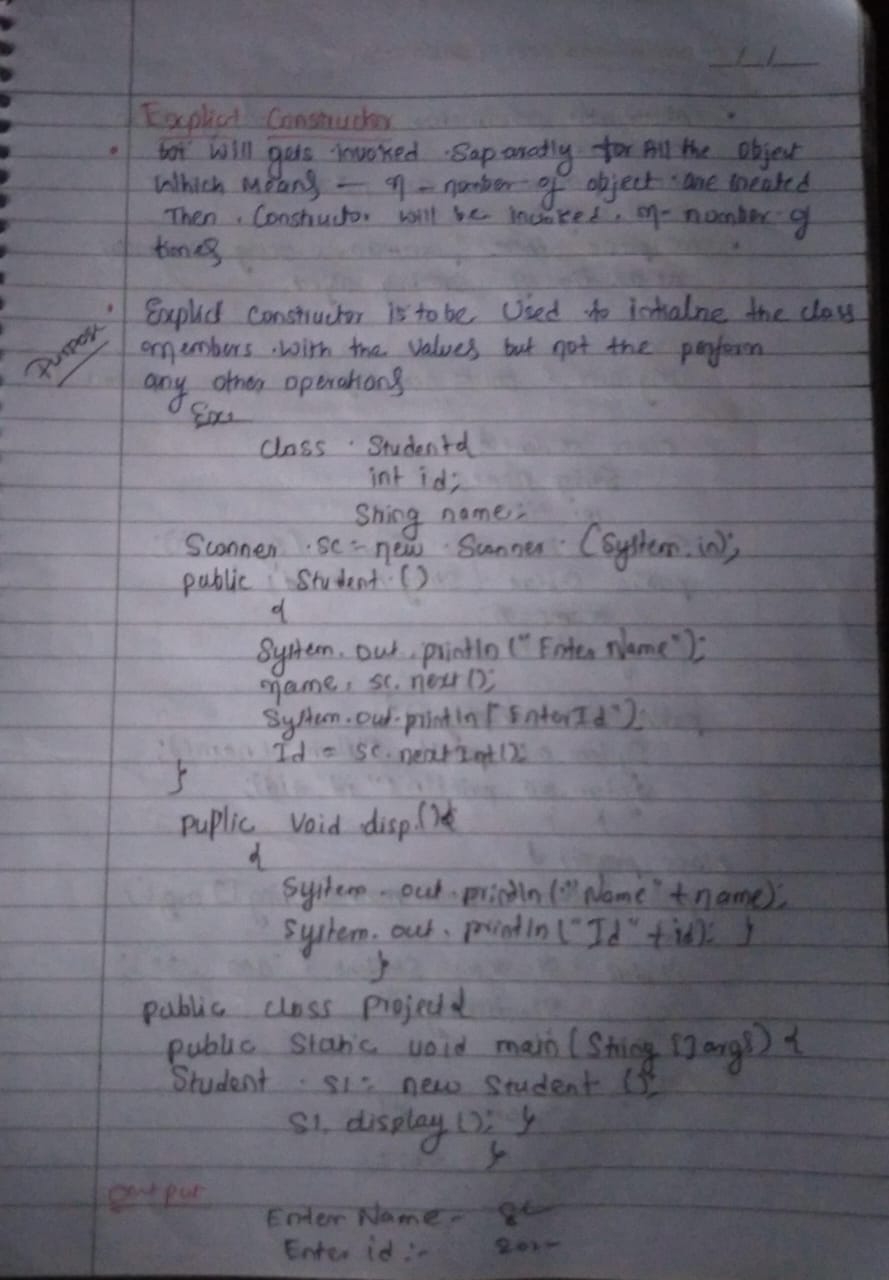 Explict Constructor
• bot will gets invoked Saparatly for All the object
Which Means — n - number of object are created
Then Constuctor will be invoked, n- number of
times
• Explict Constructor is to be Used to intialne the class
Purpose
members with the values but not the perform
any other operations
Ex:
class Student{
int id;
String name;
Scanner sc = new Scanner (System.in);
public Student ()
{
System.out.println("Enter Name");
name = sc.next();
System.out.println("EnterId");
Id = sc.nextInt();
}
puplic void disp(){
{
System.out.println("Name"+name);
System.out.println("Id"+id); }
}
public class project{
public Static void main(String []args) {
Student s1= new Student ();
S1. display(); }
}
output
Enter Name -
Enter id :-